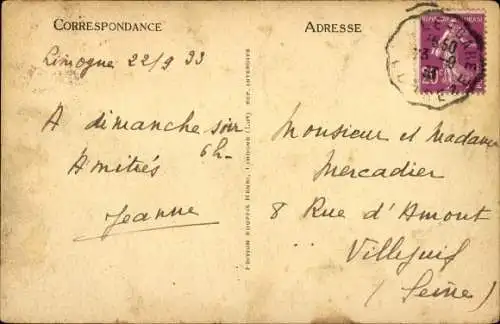 CORRESPONDANCE
ADRESSE
Limogne 22/9 33
A dimanche soir
6h-
Amitiés
Jeanne
Monsieur et Madame
Mercadier
8 Rue d'Amont
Villejuif
(Seine)